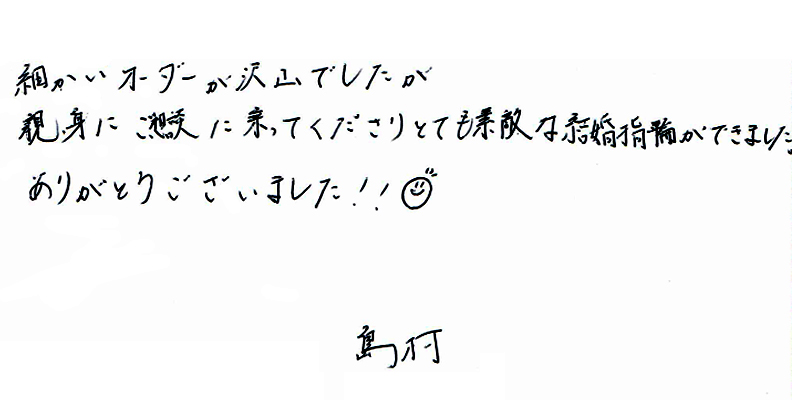 細かいオーダーが沢山でしたが
親身にご相談に乗ってくださりとても素敵な結婚指輪ができました。
ありがとうございました!!
島村